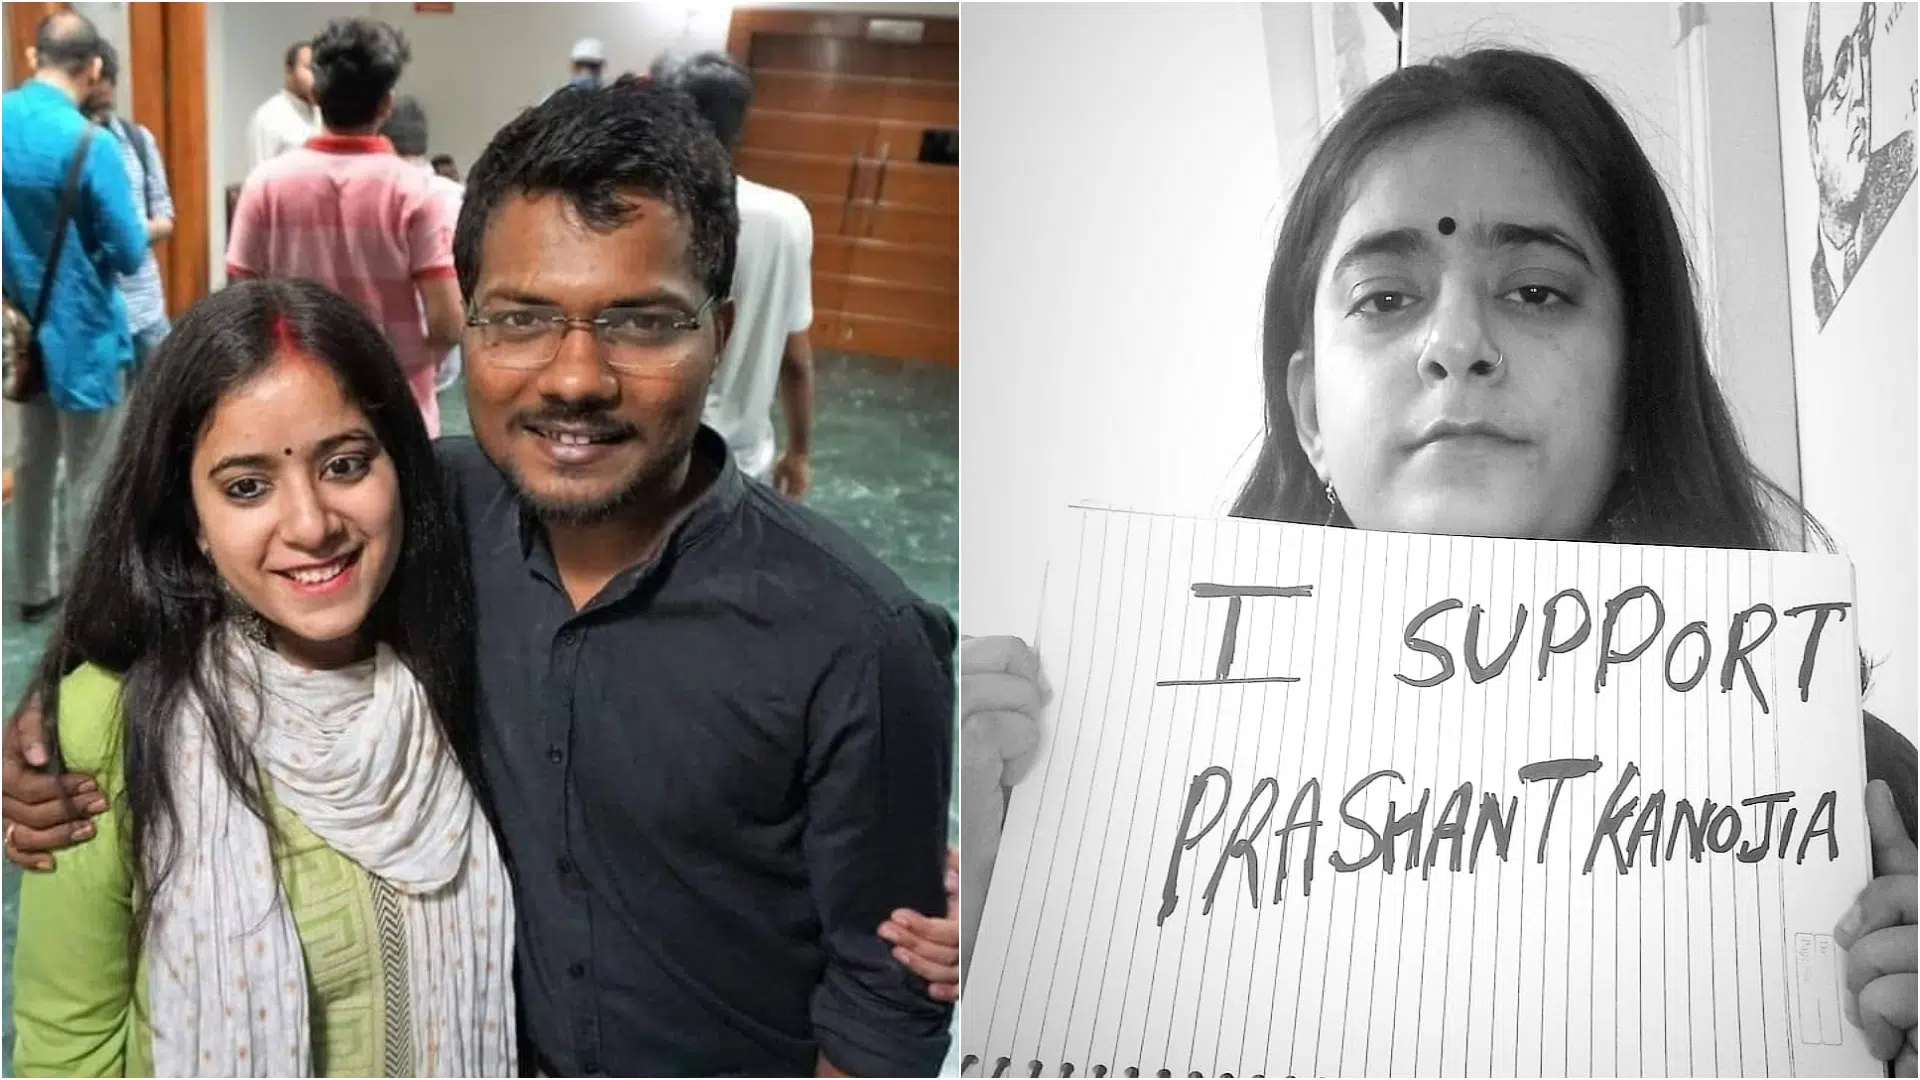 I SUPPORT
PRASHANT KANOJIA